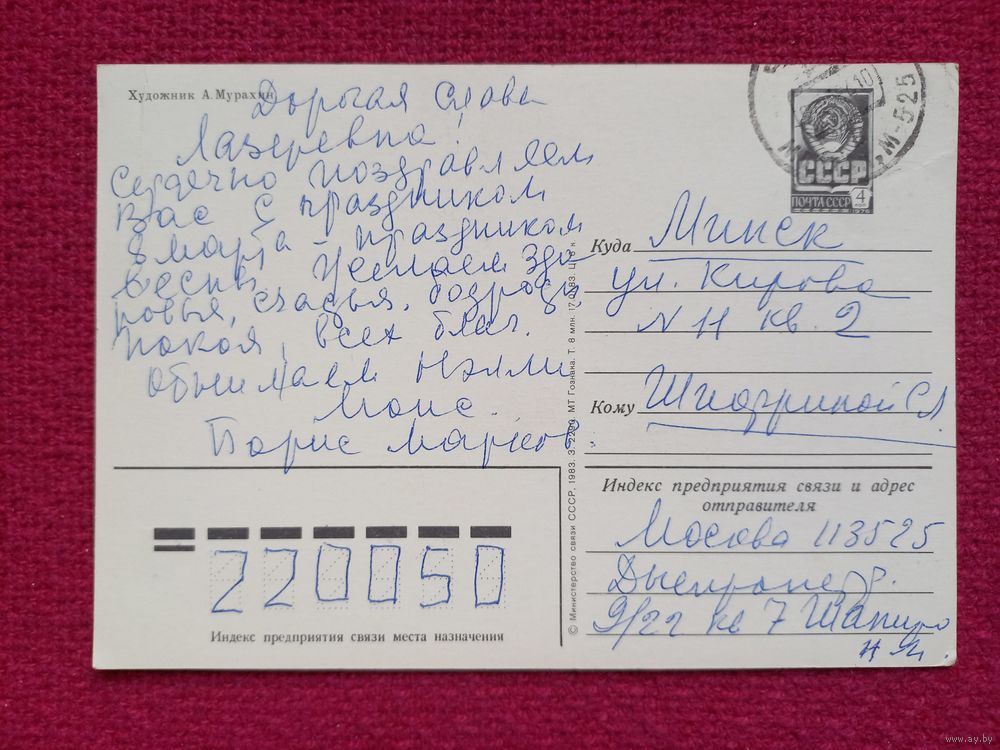 Художник А. Мурахин
Дорогая Слава
Лазеревна!
Сердечно поздравляем
Вас с праздником
8 марта - праздником
весны. Желаем здо-
ровья, счастья, бодрости
покоя, всех благ.
Обнимаем Нэлли
Моис.
Борис Марков.
М-525
СССР
ПОЧТА СССР
4
КОП
1976
Куда Минск
ул. Кирова
N 11 кв. 2
Кому
С Л.
Индекс предприятия связи и адрес
отправителя
Москва 113525
Днепропетр.
9/22 кв 7 Шапиро
Н М.
220050
Индекс предприятия связи места назначения
© Министерство связи СССР, 1983. МТ Гознака. Т. 8 млн. 17.01.83. Ц. 5 к.
www.ay.by